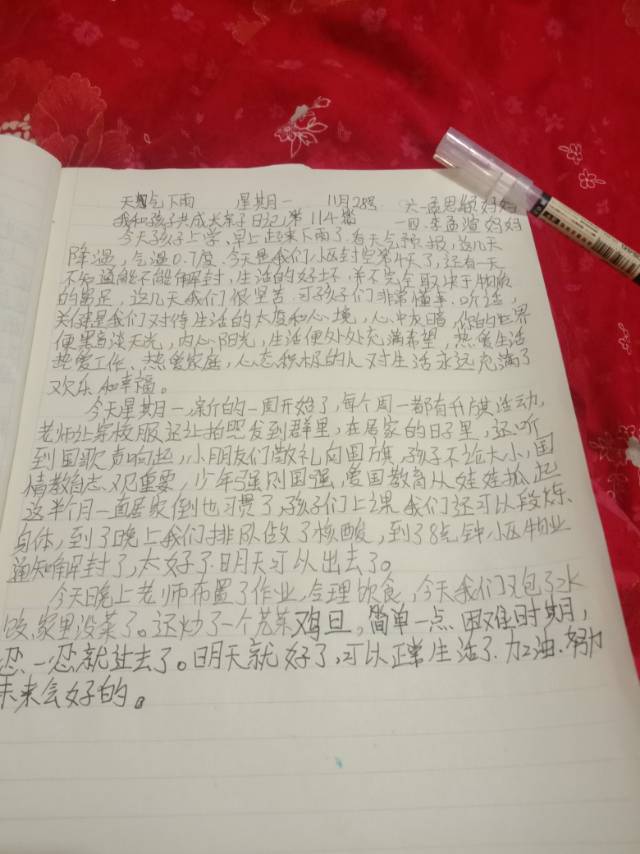 天气下雨 星期一 11月28号 六一孟思颖妈妈
我和孩子共成长亲子日记,第114篇 一四.李孟渲妈妈
今天孩子上学,早上起来下雨了.看天气预报,这几天
降温,气温0.7度.今天是我们小区封控第4天了,还有一天
不知道能不能解封,生活的好坏.并不完全取决于物质
的富足,这几天我们很坚苦.可孩子们非常懂事.听话,
关键是我们对待生活的太度和心境,心中灰暗,你的世界
便黑淡无光,内心阳光,生活便处处充满希望,热爱生活
热爱工作、热爱家庭,心态积极的人对生活永远充满了
欢乐和幸福。
今天星期一,新的一周开始了,每个周一都有升旗活动,
老师让穿校服还让拍照发到群里,在居家的日子里,还听
到国歌声响起,小朋友们敬礼向国旗,孩子不论大小,国
情教育志关重要,少年强则国强,爱国教育从娃娃抓起
这半个月一直居家倒也习惯了,孩子们上课.我们还可以段炼
身体,到了晚上我们排队做了核酸,到了8点钟小区物业
通知解封了,太好了.明天可以出去了。
今天晚上老师布置了作业,合理饮食,今天我们又包了水
饺.家里没菜了。还炒了一个 鸡旦,简单一点.困难时期,
忍一忍就过去了。明天就好了,可以正常生活了.加油.努力
未来会好的。